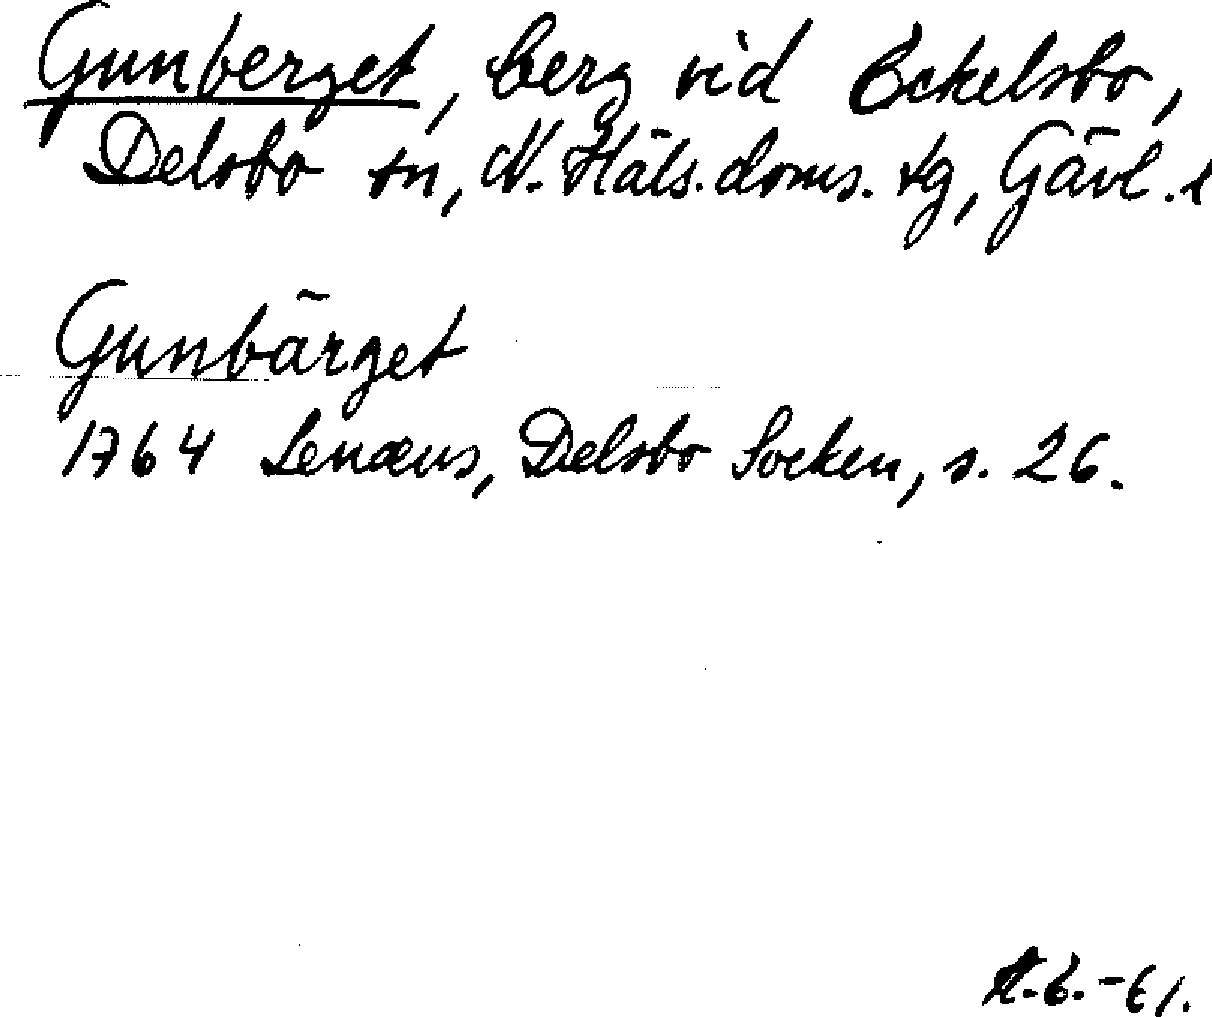 Gunberget, berg vid Eckelsbo,
Delsbo sn, N. Häls. doms. tg, Gävl. l
Gunbärget
1764 Lenæus, Delsbo Socken, s. 26.
A.B.-61.